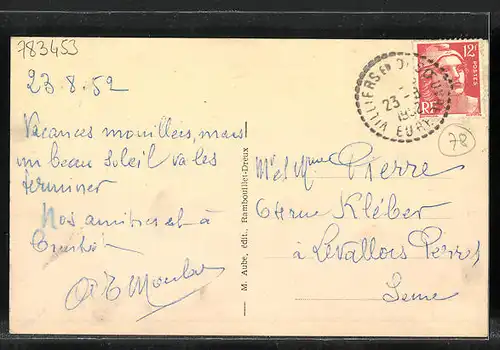 783453
23.8.52
Vacances mouillées, mais
un beau soleil va les
terminer
Nos amitiés et à
M. Aube, édit., Rambouillet-Dreux
VILLIERS EN
23
1952
EURE
12F
POSTES
RF
78
Mr et Mme Pierre
64 rue Kléber
à Levallois Perret
Seine